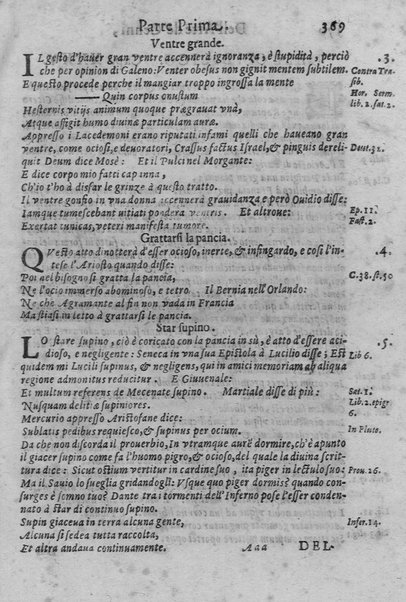 Parte Prima. 389
Ventre grande.
IL gesto d'hauer gran ventre accennerà ignoranza, è stupidità, perciò .3.
che per opinion di Galeno: Venter obesus non gignit mentem subtilem. Contra Tra-
E questo procede perche il mangiar troppo ingrossa la mente sib.
—— Quin corpus onustum Hor. Serm.
Hesternis vitijs animum quoque prægrauat vnà, lib. 2. sat. 2.
Atque affigit humo diuinæ particulam auræ.
Appresso i Lacedemoni erano riputati infami quelli che haueano gran
ventre, come ociosi, e deuoratori, Crassus factus Israel, & pinguis dereli- Deut. 32.
quit Deum dice Mosè: Et il Pulci nel Morgante:
E dice corpo mio fatti capanna,
Ch'io t'hò à disfar le grinze à questo tratto.
Il ventre gonfio in vna donna accennerà grauidanza e però Ouidio disse:
Iamque tumescebant vitiati pondera ventris. Et altroue: Ep. 11.
Exertat tunicas, veteri manifesta tumore. Fast. 2.
Grattarsi la pancia.
QVesto atto dinotterà d'esser ocioso, inerte, & infingardo, e così l'in- .4.
tese l'Ariosto quando disse:
Poi nel bisogno si gratta la pancia, C. 38. st. 50
Ne l'ocio immerso abominoso, e tetro. Il Bernia nell'Orlando:
Ne che Agramante al fin non vada in Francia
Ma stiasi in letto à grattarsi le pancia.
Star supino.
LO stare supino, ciò è coricato con la pancia in sù, è atto d'essere aci- .5.
dioso, e negligente: Seneca in vna sua Epistola à Lucilio disse; Est Lib 6.
quidem mi Lucili supinus, & negligens, qui in amici memoriam ab aliqua
regione admonitus reducitur. E Giuuenale:
Et multum referens de Mecenate supino. Martiale disse di più: Sat. 1.
Nusquam delitiæ supiniores. Lib. 2. epigr
Mercurio appresso Aristofane dice: 6.
Sublatis pedibus requiesco, & supinus per ocium. In Pluto.
Da che non discorda il prouerbio, In vtramque aurẽ dormire, ch'è apunto
il giacer supino come fa l'huomo pigro, & ocioso, del quale la diuina scrit-
tura dice: Sicut ostium vertitur in cardine suo, ita piger in lectulo suo: Prou. 26.
Ma il Sauio lo sueglia gridandogli: Vsque quo piger dormis? quando con-
surges è somno tuo? Dante tra i tormenti dell'Inferno pose l'esser conden-
nato à star di continuo supino.
Supin giaceua in terra alcuna gente, Infer. 14.
Alcuna si sedea tutta raccolta,
Et altra andaua continuamente. Aaa DEL-